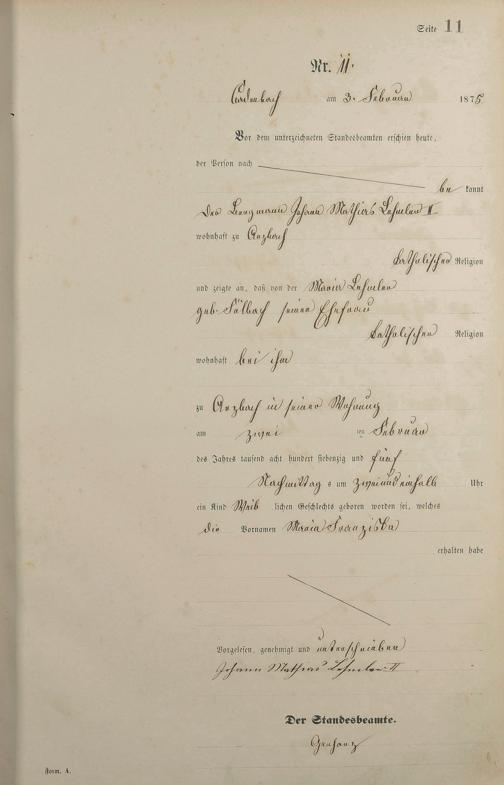 Seite 11
Nr. 11.
Cadenbach am 3. Februar 1875
Vor dem unterzeichneten Standesbeamten erschien heute,
der Person nach
be kannt
Der Bergmann Johann Mathias Lehmler II
wohnhaft zu Arzbach
katholischer Religion
und zeigte an, daß von der Maria Lehmler
geb. seiner Ehefrau
katholischer Religion
wohnhaft bei ihm
zu Arzbach in seiner Wohnung
am zwei ten Februar
des Jahres tausend acht hundert siebenzig und fünf
Nachmittag s um zweiundeinhalb Uhr
ein Kind Weib lichen Geschlechts geboren worden sei, welches
die Vornamen Maria Franziska
erhalten habe
Vorgelesen, genehmigt und unterschrieben
Johann Mathias Lehmler II
Der Standesbeamte.
Form. A.